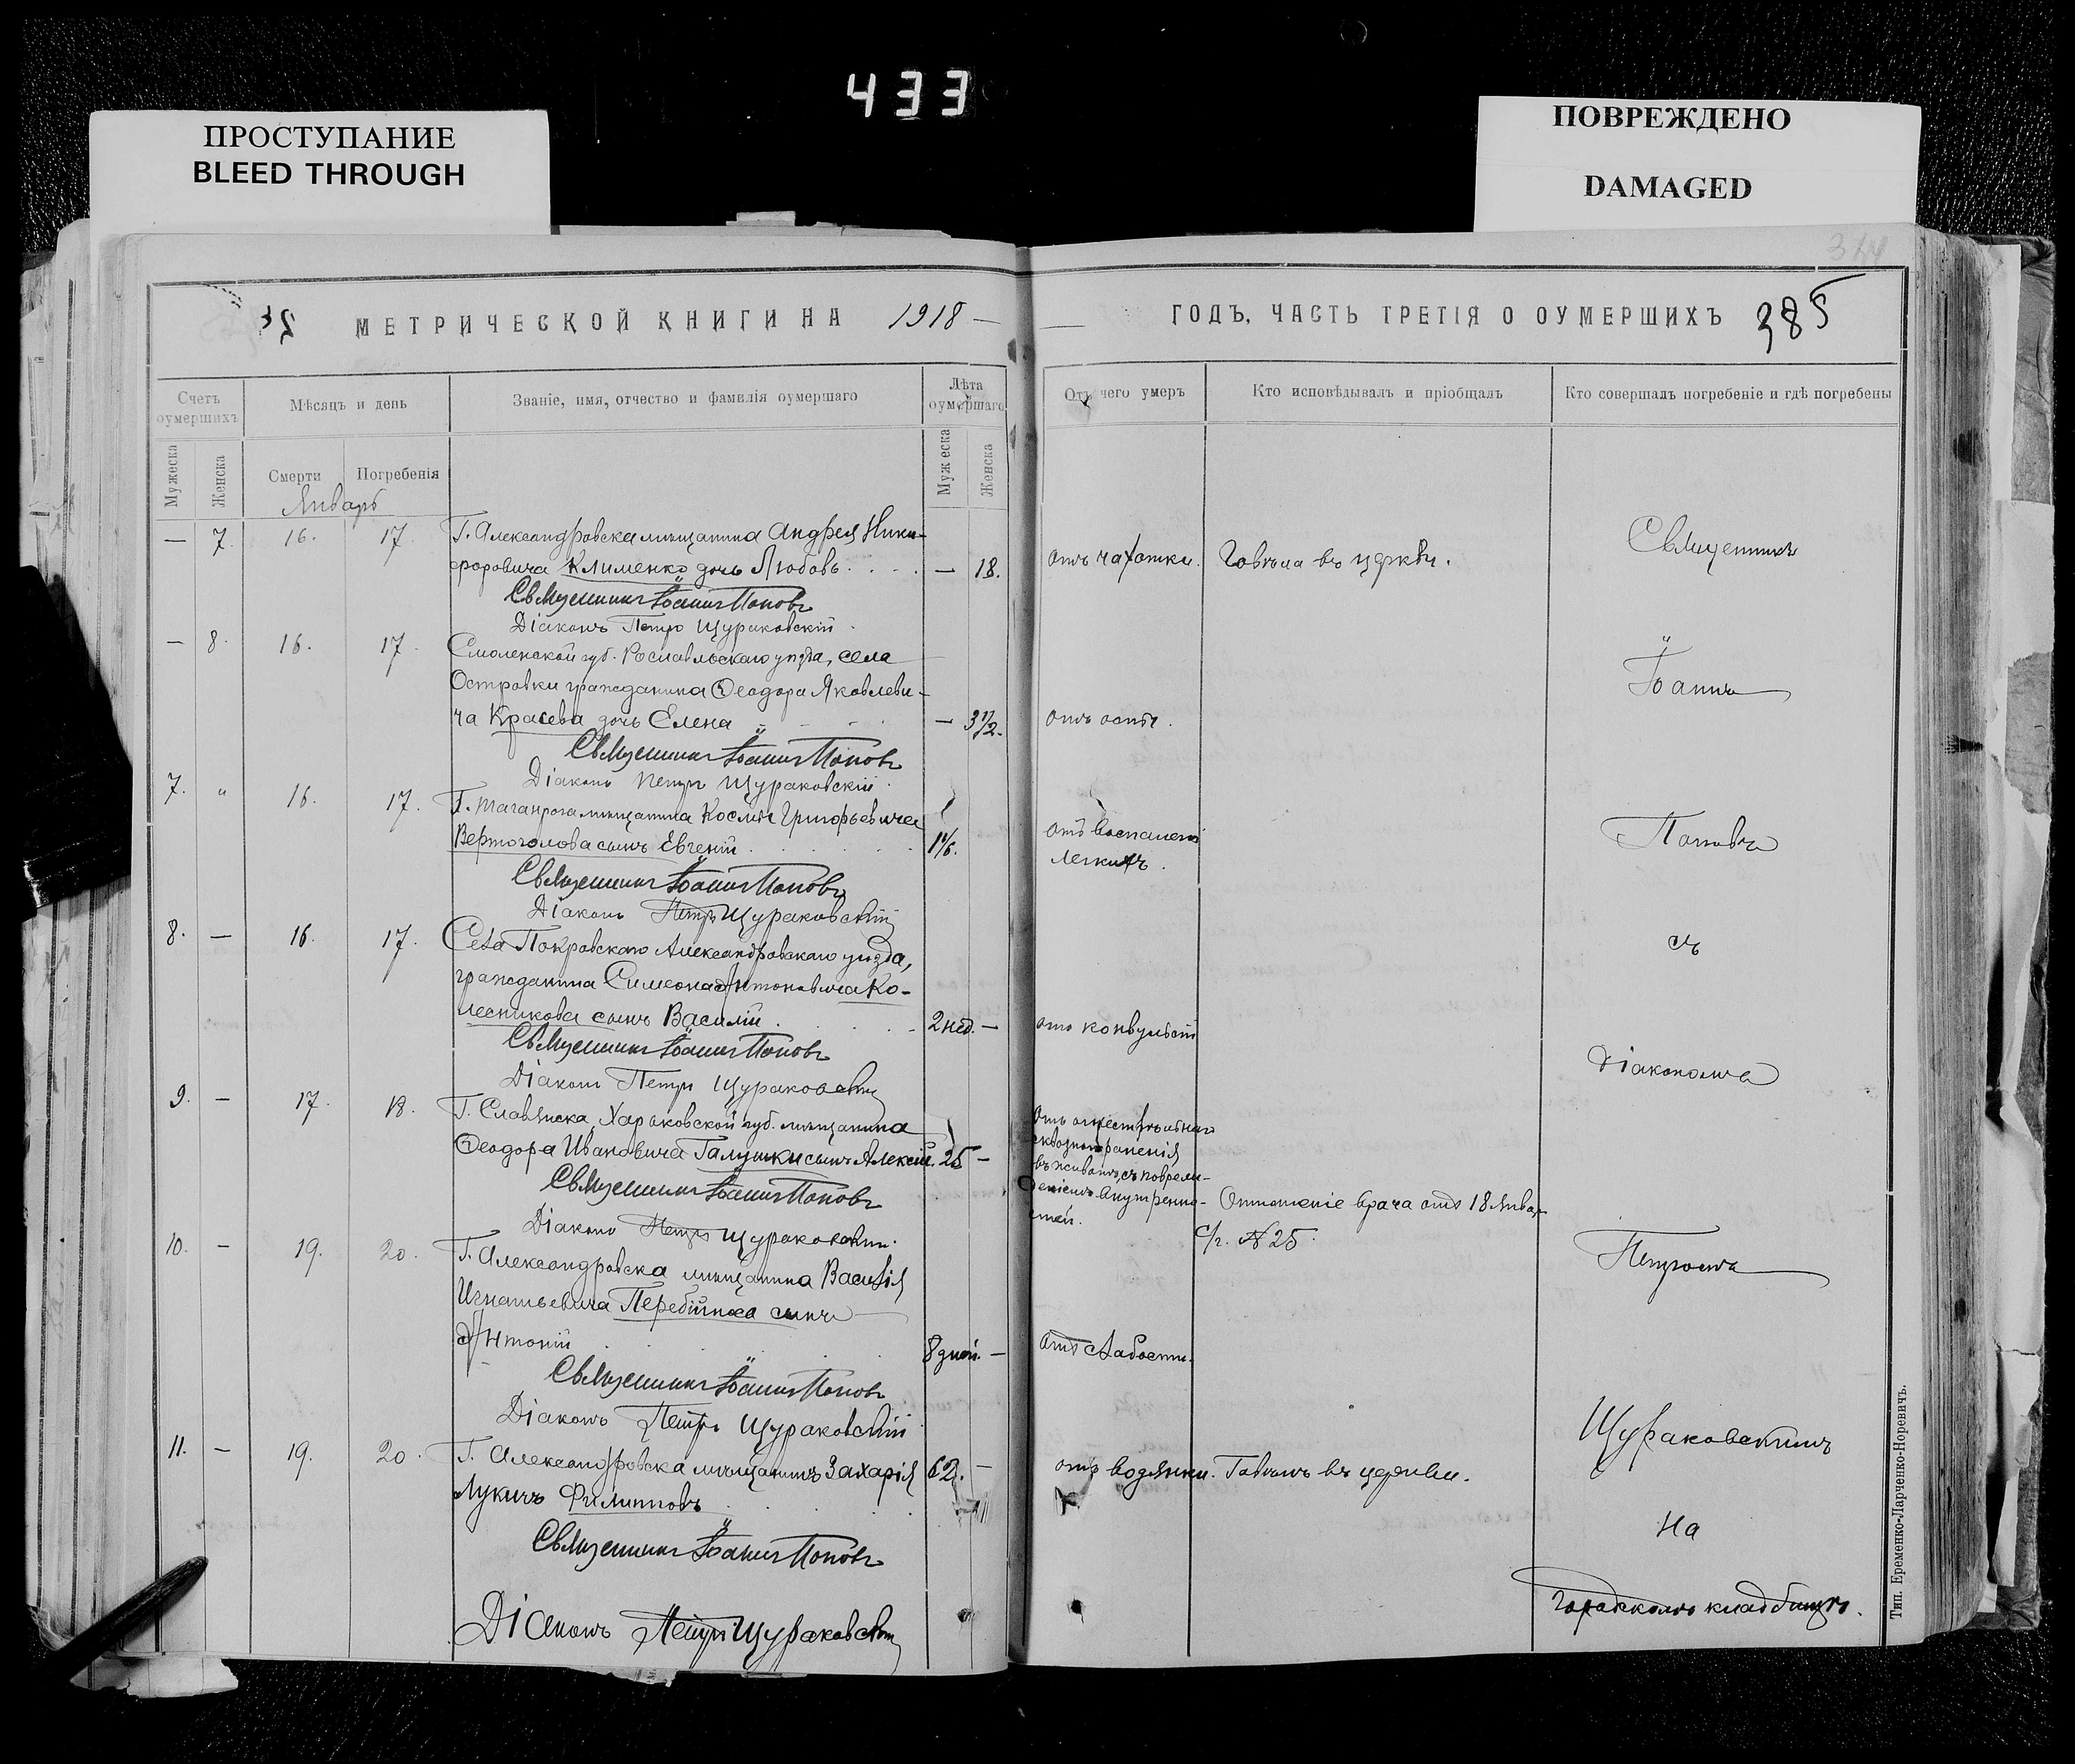 433
ПРОСТУПАНИЕ
BLEED THROUGH
ПОВРЕЖДЕНО
DAMAGED
МЕТРИЧЕСКОЙ КНИГИ НА 1918 —
— ГОДЪ, ЧАСТЬ ТРЕТІЯ О ОУМЕРШИХЪ 385
Счетъ оумершихъ
Мѣсяцъ и день
Званіе, имя, отчество и фамилія оумершаго
Лѣта оумершаго
Отъ чего умеръ
Кто исповѣдывалъ и пріобщалъ
Кто совершалъ погребеніе и гдѣ погребены
Мужеска
Женска
Смерти
Погребенія
Мужеска
Женска
Январь
— 7. 16. 17. Г. Александровска мѣщанина Андрея Ники-
форовича Клименко дочь Любовь . . . . — 18. отъ чахотки. Говѣла въ церкви.
Священникъ Іоаннъ Поповъ
Діаконъ Петръ Щураковскій.
— 8. 16. 17. Смоленской губ. Рославльскаго уѣзда, села
Островки гражданина Ѳеодора Яковлеви-
ча Красева дочь Елена — 3 1/2. отъ оспы.
Священникъ Іоаннъ Поповъ
Діаконъ Петръ Щураковскій.
7. " 16. 17. Г. Таганрога мѣщанина Космы Григорьевича
Вертоголова сынъ Евгеній . . . . . . отъ воспаленія
легкихъ.
Священникъ Іоаннъ Поповъ
Діаконъ Петръ Щураковскій
8. — 16. 17. Села Покровскаго Александровскаго уѣзда,
гражданина Симеона Антоновича Ко-
лесникова сынъ Василій . . . . 2 нед. — отъ конвульсій
Священникъ Іоаннъ Поповъ
Діаконъ Петръ Щураковскій
9. — 17. 18. Г. Славянска, Харьковской губ. мѣщанина
Ѳеодора Ивановича Галушки сынъ Алексій. 25 —
отъ огнестрѣльнаго
сквознаго раненія
въ животъ, съ повреж-
деніемъ внутренно-
стей.
Отношеніе врача отъ 18 Январ
с/г. № 25.
Священникъ Іоаннъ Поповъ
Діаконъ Петръ Щураковскій.
10. — 19. 20. Г. Александровска мѣщанина Василія
Игнатьевича Перебійноса сынъ —
Антоній . . . . . 8 дней. — отъ слабости.
Священникъ Іоаннъ Поповъ
Діаконъ Петръ Щураковскій
11. — 19. 20. Г. Александровска мѣщанинъ Захарія 62. — отъ водянки. Говѣлъ въ церкви.
Лукичъ Филипповъ . . . .
Священникъ Іоаннъ Поповъ
Діаконъ Петръ Щураковскій
Священникъ
Іоаннъ
Поповъ
съ
Діакономъ
Петромъ
Щураковскимъ
На
городскомъ кладбищѣ.
Тип. Еременко-Ларченко-Норевичъ.